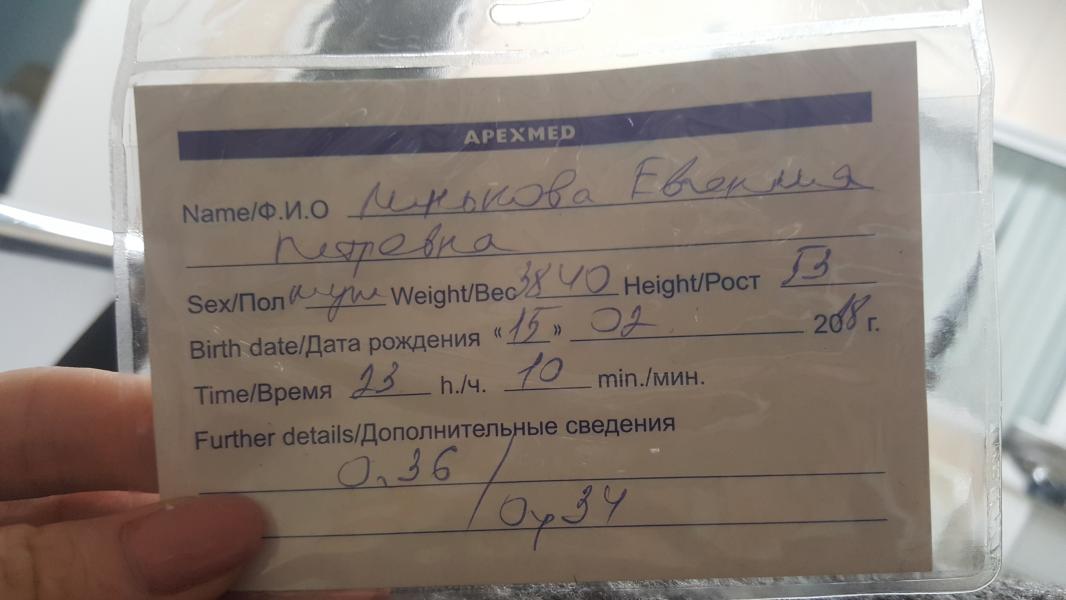 APEXMED
Name/Ф.И.О Минькова Евгения
Петровна
Sex/Пол муж Weight/Вес 3840 Height/Рост 53
Birth date/Дата рождения «15» 02 2018 г.
Time/Время 23 h./ч. 10 min./мин.
Further details/Дополнительные сведения
О2 36 /
Ог 34